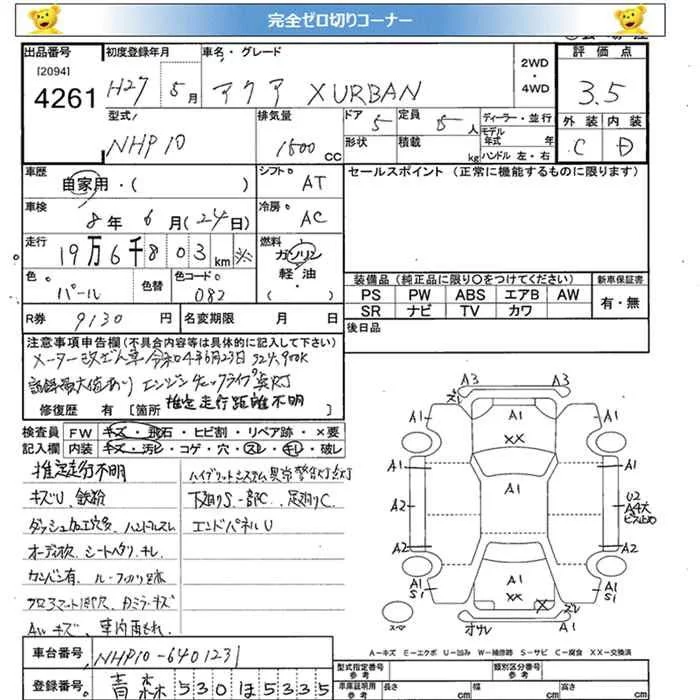 完全ゼロ切りコーナー
出品番号 初度登録年月 車名・グレード 2WD・4WD 評価点
[2094]
4261 H27 5月 アクア X URBAN 3.5
型式 排気量 ドア 定員 ディーラー・並行 外装 内装
NHP10 1500 CC 5 5人 モデル年式 年 C D
形状 積載 kg ハンドル 左・右
車歴 シフト セールスポイント (正常に機能するものに限ります)
自家用・( ) AT
車検 冷房
8年 6月(24日) AC
走行 燃料
19万6千803km ※ ガソリン
色 色替 色コード 軽油
パール 082 ( )
装備品 (純正品に限り○をつけてください) 新車保証書
PS PW ABS エアB AW 有・無
SR ナビ TV カワ
R券 9130円 名変期限 月 日 後日品
注意事項申告欄(不具合内容等は具体的に記入して下さい)
メーター改ざん車 令和04年6月23日 324,900K
記録最大値あり エンジンチェックランプ点灯
修復歴 有 [箇所 推定走行距離不明 ]
検査員 FW キズ・飛石・ヒビ割・リペア跡・×要
記入欄 内装 キズ・汚レ・コゲ・穴・スレ・キレ・破レ
推定走行不明 ハイブリットシステム異常警告灯点灯
キズU、鉄粉 下廻りS一部C、足廻りC
ダッシュ加工穴多、ハンドルスレ エンドパネルU
オーディオ欠、シートヘタリ・キレ
カンバン有
フロアマット
Aw キズ、車内
A3 A3
ズレ
A1 A1 A1
XX
A1 A1
A1
A2 U2
A4大
A2 A2
A1 A1 A1
S1 XX X S1
ズレ
スマ オサレ
A-キズ E-エクボ U-凹み W-補修跡 S-サビ C-腐食 XX-交換済
車台番号 NHP10-6401231 型式指定番号 参考 類別区分番号 参考
登録番号 青森 530 ほ 5335 車庫証明用 参考 長さ cm 幅 cm 高さ cm